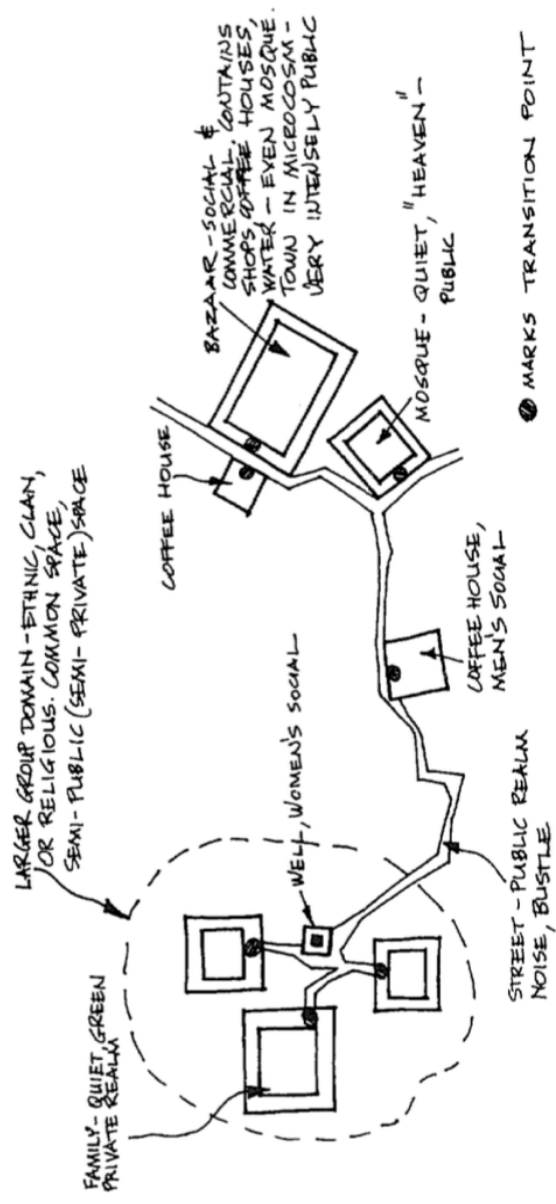 FAMILY - QUIET, GREEN
PRIVATE REALM
LARGER GROUP DOMAIN - ETHNIC, CLAN,
OR RELIGIOUS. COMMON SPACE,
SEMI-PUBLIC (SEMI-PRIVATE) SPACE
WELL, WOMEN'S SOCIAL
STREET - PUBLIC REALM
NOISE, BUSTLE
COFFEE HOUSE,
MEN'S SOCIAL
COFFEE HOUSE
BAZAAR - SOCIAL &
COMMERCIAL, CONTAINS
SHOPS, COFFEE HOUSES,
WATER - EVEN MOSQUE.
TOWN IN MICROCOSM -
VERY INTENSELY PUBLIC
MOSQUE - QUIET, "HEAVEN" -
PUBLIC
MARKS TRANSITION POINT